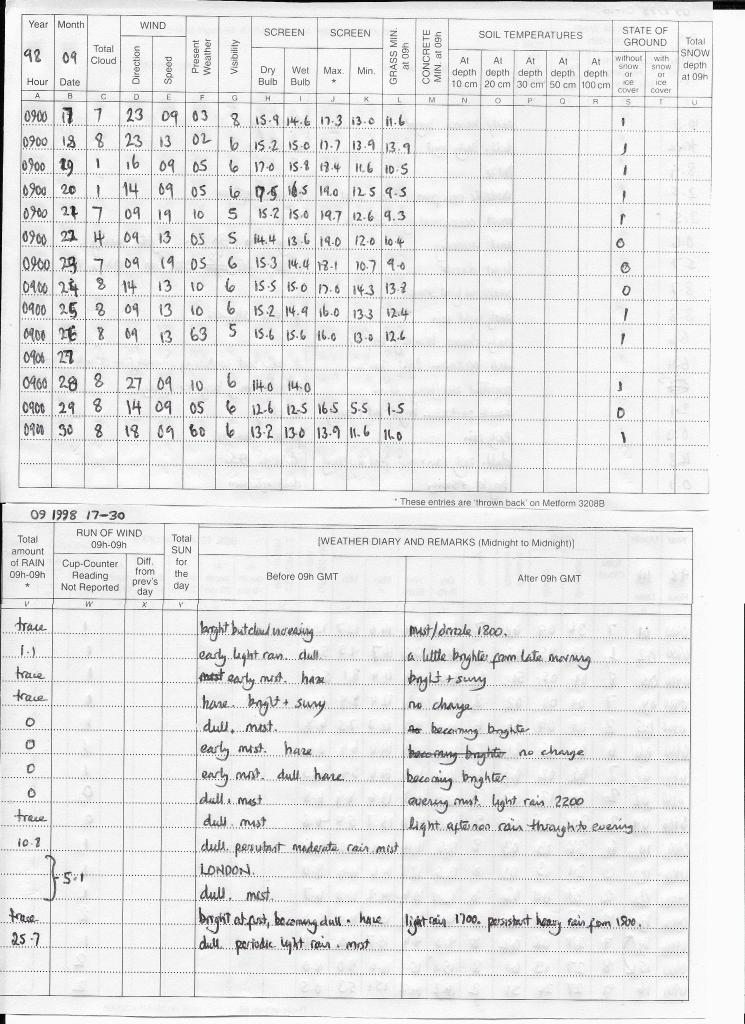 Year Month Total Cloud WIND Present Weather Visibility SCREEN SCREEN GRASS MIN. at 09h CONCRETE MIN. at 09h SOIL TEMPERATURES STATE OF GROUND Total SNOW depth at 09h
98 09 Direction Speed Dry Bulb Wet Bulb Max. * Min. At depth 10 cm At depth 20 cm At depth 30 cm At depth 50 cm At depth 100 cm without snow or ice cover with snow or ice cover
Hour Date
A B C D E F G H I J K L M N O P Q R S T U
0900 17 7 23 09 03 8 15.9 14.6 17.3 13.0 11.6 1
0900 18 8 23 13 02 6 15.2 15.0 17.7 13.9 13.9 1
0900 19 1 16 09 05 6 17.0 15.8 18.4 11.6 10.5 1
0900 20 1 14 09 05 6 17.5 16.5 19.0 12.5 9.5 1
0900 21 7 09 19 10 5 15.2 15.0 19.7 12.6 9.3 1
0900 22 4 09 13 05 5 14.4 13.6 19.0 12.0 10.4 0
0900 23 7 09 19 05 6 15.3 14.4 18.1 10.7 9.0 0
0900 24 8 14 13 10 6 15.5 15.0 17.0 14.3 13.3 0
0900 25 8 09 13 10 6 15.2 14.9 16.0 13.3 12.4 1
0900 26 8 09 13 63 5 15.6 15.6 16.0 13.0 12.6 1
0900 27
0900 28 8 27 09 10 6 14.0 14.0 1
0900 29 8 14 09 05 6 12.6 12.5 16.5 5.5 1.5 0
0900 30 8 18 09 60 6 13.2 13.0 13.9 11.6 11.0 1
* These entries are 'thrown back' on Metform 3208B
09 1998 17-30
Total amount of RAIN 09h-09h * RUN OF WIND 09h-09h Total SUN for the day [WEATHER DIARY AND REMARKS (Midnight to Midnight)]
Cup-Counter Reading Not Reported Diff. from prev's day Before 09h GMT After 09h GMT
V W X Y
trace bright but cloud increasing mist/drizzle 1800.
1.1 early light rain. dull. a little brighter from late morning
trace early mist. haze bright + sunny
trace haze. bright + sunny no change
0 dull. mist. becoming brighter
0 early mist. haze becoming brighter no change
0 early mist. dull haze becoming brighter
0 dull. mist evening mist. light rain 2200
trace dull. mist light afternoon rain through to evening
10.8 dull. persistant moderate rain mist
5.1 LONDON.
dull. mist.
trace bright at first, becoming dull. haze light rain 1700. persistant heavy rain from 1800.
25.7 dull. periodic light rain. mist